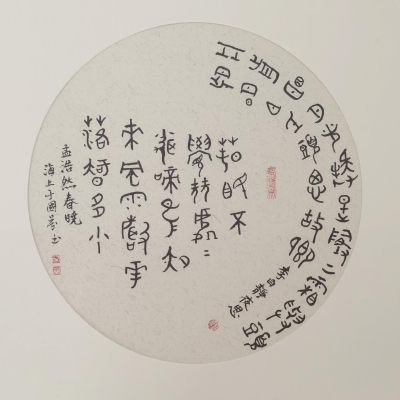 牀前明月光疑是地上霜舉頭
望明月低頭思故鄉
李白静夜思
春眠不
覺曉處〻
聞啼鳥夜
來風雨聲花
落知多少
孟浩然春晓
海上于國芬书